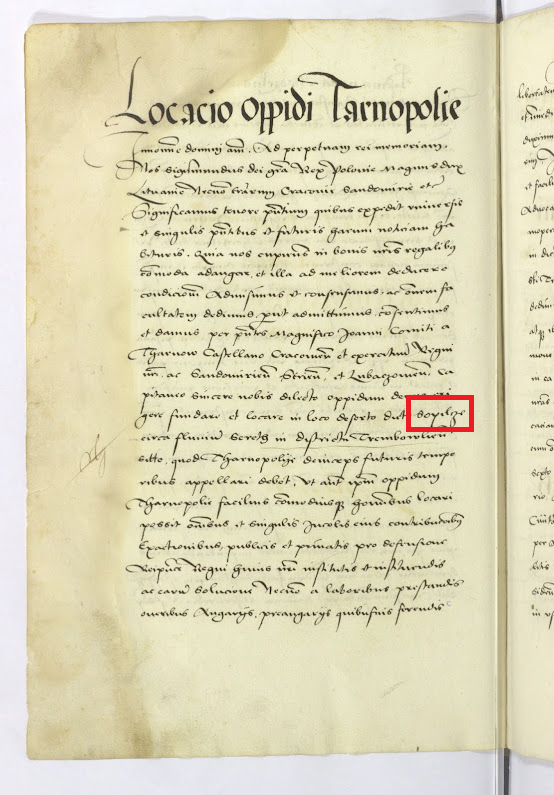 Locacio Oppidi Tarnopolie
In nomine domini amen. Ad perpetuam rei memoriam.
Nos Sigismundus dei gra Rex Polonie Magnus dux
Lituanie Necno Cracovie Sandomirie etc
Significamus tenore pntium quibus expedit universis
et singulis pntibus et futuris harum noticiam ha
bituris. Quia nos cupientes in bonis nris regalibus
comoda adaugeri, et illa ad meliorem deducere
condicionem Admisimus et consensimus, ac omnem fa
cultatem dedimus, put admittimus, consentimus
et damus per pntes Magnifico Joanni Comiti a
Tharnow Castellano Cracovien et exercituum Regni
nri, ac Sandomirien Strien, et Lubaczowien, Ca
pitaneo sincere nobis dilecto oppidum de
gere fundare et locare in loco deserto dicto Sopilcze
circa fluvium Sereth in districtu Trembowlien
sito, quod Tharnopolije deinceps futuris tempo
ribus appellari debet, Ut aut ipm oppidum
Tharnopolie facilius comodiusque hominibus locari
possit omnibus et singulis Incolis eius contributionibus
Exactionibus, publicis et privatis pro defensione
Reipuce Regni huius nri institutis et instituendis
ac earum solucione Necno a laboribus prestandis
oneribus Angarijs, preangarijs quibusuis ferendis